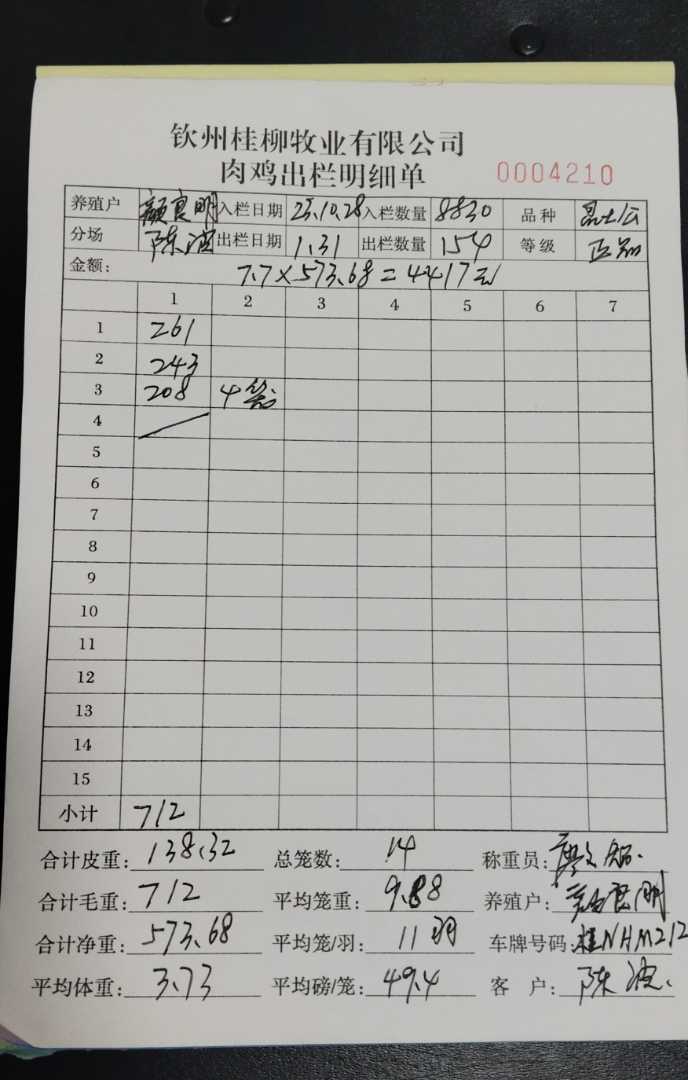 钦州桂柳牧业有限公司
肉鸡出栏明细单 0004210
养殖户 颜良明 入栏日期 23.10.28 入栏数量 8830 品种
分场 陈波 出栏日期 1.31 出栏数量 154 等级
金额: 7.7×573.68=4417元
1 2 3 4 5 6 7
1 261
2 243
3 208 4笼
4
5
6
7
8
9
10
11
12
13
14
15
小计 712
合计皮重: 138.32 总笼数: 14 称重员:
合计毛重: 712 平均笼重: 9.88 养殖户: 颜良明
合计净重: 573.68 平均笼/羽: 11羽 车牌号码: 桂NHM212
平均体重: 3.73 平均磅/笼: 49.4 客户: 陈波